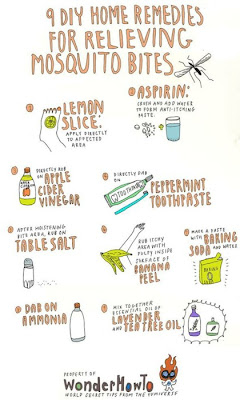 9 DIY HOME REMEDIES
FOR RELIEVING
MOSQUITO BITES
LEMON
SLICE:
APPLY DIRECTLY
TO AFFECTED
AREA
ASPIRIN:
CRUSH AND ADD WATER
TO FORM ANTI-ITCHING
PASTE.
DIRECTLY RUB
ON APPLE
CIDER
VINEGAR
DIRECTLY DAB
ON
PEPPERMINT
TOOTHPASTE
AFTER MOISTENING
BITE AREA, RUB ON
TABLE SALT
RUB ITCHY
AREA WITH
PULPY INSIDE
SURFACE OF
BANANA
PEEL
MAKE A PASTE
WITH BAKING
SODA AND WATER
DAB ON
AMMONIA
MIX TOGETHER
ESSENTIAL OIL OF
LAVENDER
AND TEA TREE OIL
PROPERTY OF
WonderHowTo
WORLD SECRET TIPS FROM THE UNIVERSE